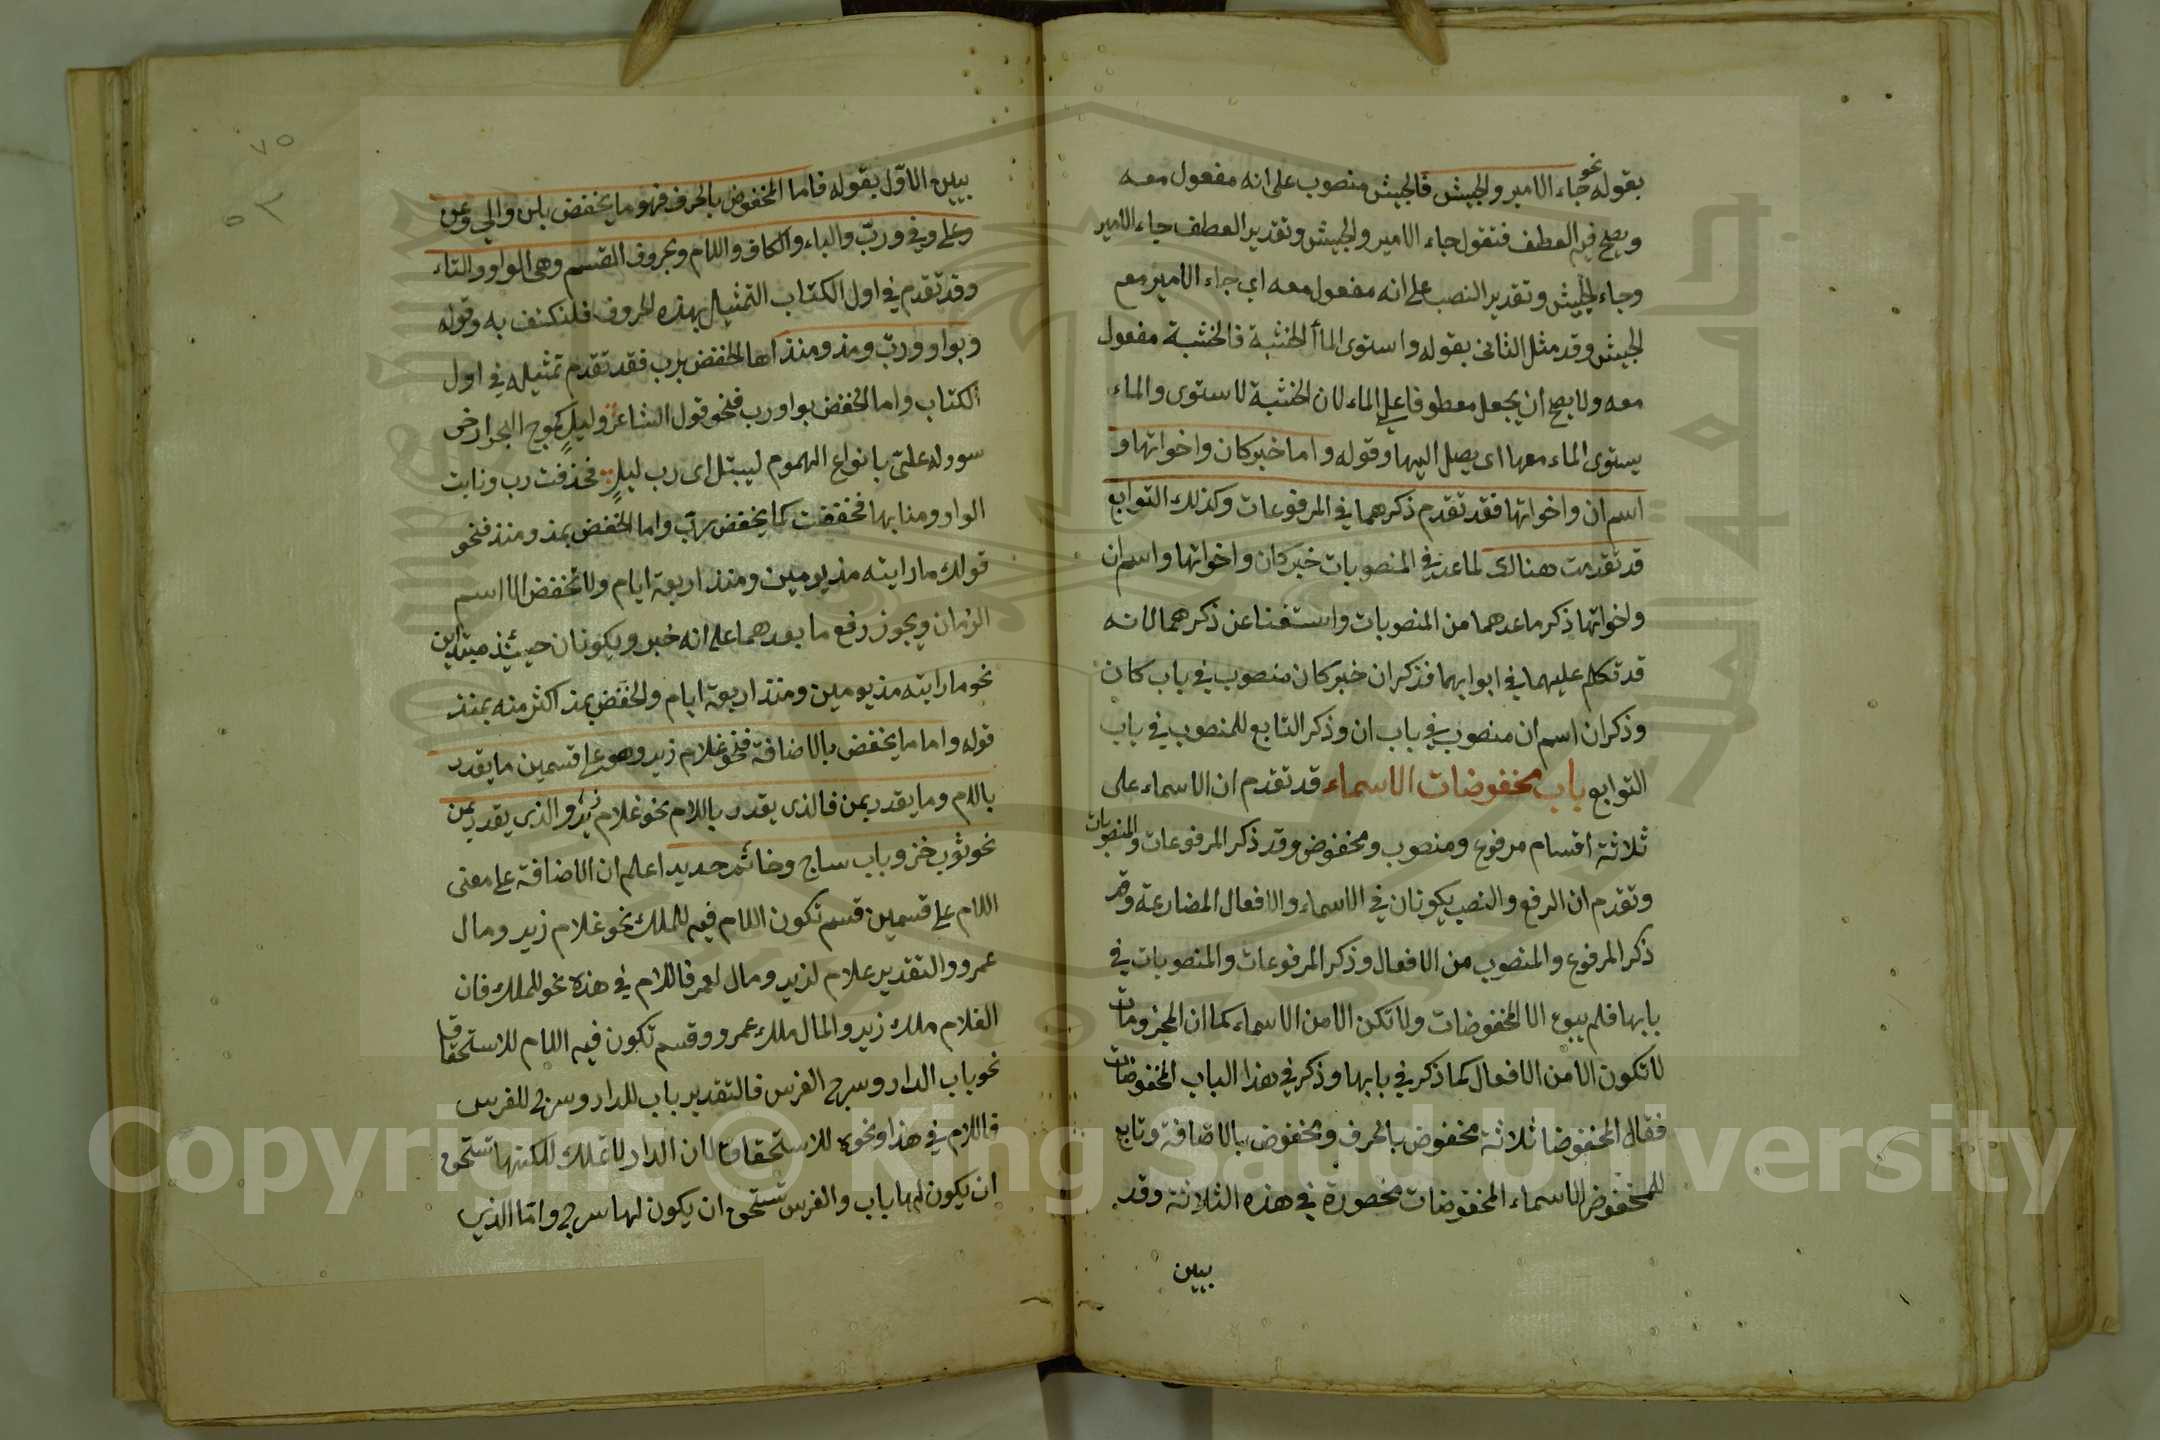 بقوله نحو جاء الامير والجيش فالجيش منصوب على انه مفعول معه
ويصح فيه العطف فتقول جاء الامير والجيش وتقدير العطف جاء الامير
وجاء الجيش وتقدير النصب على انه مفعول معه اي جاء الامير مع
الجيش وقد مثل الثاني بقوله واستوى الماأ الخشبة فالخشبة مفعول
معه ولا يصح ان يجعل معطوفا على الماء لان الخشبة لا ستوى والماء
يستوى الماء معها اى يصل اليها وقوله واما خبر كان واخواتها و
اسم ان واخواتها فقد تقدم ذكرهما في المرفوعات وكذلك التوابع
قد تقدمت هنالك لما عد في المنصوبات خبر كان واخواتها واسم ان
واخواتها ذكر ما عدهما من المنصوبات واستغنا عن ذكرهما لانه
قد تكلم عليهما في ابوابهما فذكر ان خبر كان منصوب في باب كان
وذكر ان اسم ان منصوب في باب ان وذكر التابع للمنصوب في باب
التوابع باب مخفوضات الاسماء قد تقدم ان الاسماء على
ثلاثة اقسام مرفوع ومنصوب ومخفوض وقد ذكر المرفوعات والمنصوبات
وتقدم ان الرفع والنصب يكونان في الاسماء والافعال المضارعة وقد
ذكر المرفوع والمنصوب من الافعال وذكر المرفوعات والمنصوبات في
بابها فلم يبوع الا المخفوضات ولا تكن الا من الاسماء كما ان المجزومات
لا تكون الا من الافعال كما ذكر في بابها وذكر في هذا الباب المخفوضات
فقال المخفوضا ثلاثة مخفوض بالحرف ومخفوض بالاضافة وتابع
للمخفوض الاسماء المخفوضات محصورة في هذه الثلاثة وقد
يبين
٧٥
٥٣
يبين الاول بقوله فاما المخفوض بالحرف فهو ما يخفض بمن والي وعن
وعلى وفي ورب والباء والكاف واللام وبحروف القسم وهى الواو والتاء
وقد تقدم في اول الكتاب التمثيل بهذه الحروف فلنكتف به وقوله
وبواو ورب ومذ ومنذ اما الخفض برب فقد تقدم تمثيله في اول
الكتاب واما الخفض بواو رب فنحو قول الشاعر وليل كموج البحر ارخى
سدوله علي بانواع الهموم ليبتل اى رب ليل فحذفت رب ونابت
الواو ومنابها فخفضت كما يخفض برب واما الخفض بمذ ومنذ فنحو
قولك ما رايته مذ يومين ومنذ اربعة ايام ولا تخفض الا اسم
الزمان ويجوز رفع ما بعدهما على انه خبر ويكونان حيئذ مبتداين
نحو ما رايته مذ يومين ومنذ اربعة ايام والخفض بمذ اكثر منه بمنذ
قوله واما ما يخفض بالاضافة فنحو غلام زيد وهو على قسمين ما يقدر
باللام وما يقدر بمن فالذى يقدر باللام نحو غلام زيد والذى يقدر بمن
نحو ثوب خز وباب ساج وخاتم حديد اعلم ان الاضافة على معنى
اللام على قسمين قسم تكون اللام فيه للملك نحو غلام زيد ومال
عمرو والتقدير غلام لزيد ومال لعمر فاللام في هذه نحو للملك فان
الغلام ملك زيد والمال ملك عمرو وقسم تكون فيه اللام للاستحقاق
نحو باب الدار وسرج الفرس فالتقدير باب للدار وسرج للفرس
فاللام في هذا ونحوه للاستحقاق لان الدار لا تملك لكنها تستحق
ان يكون لها باب والفرس تستحق ان يكون لها سرج واما الذى
Copyright © King Saud University